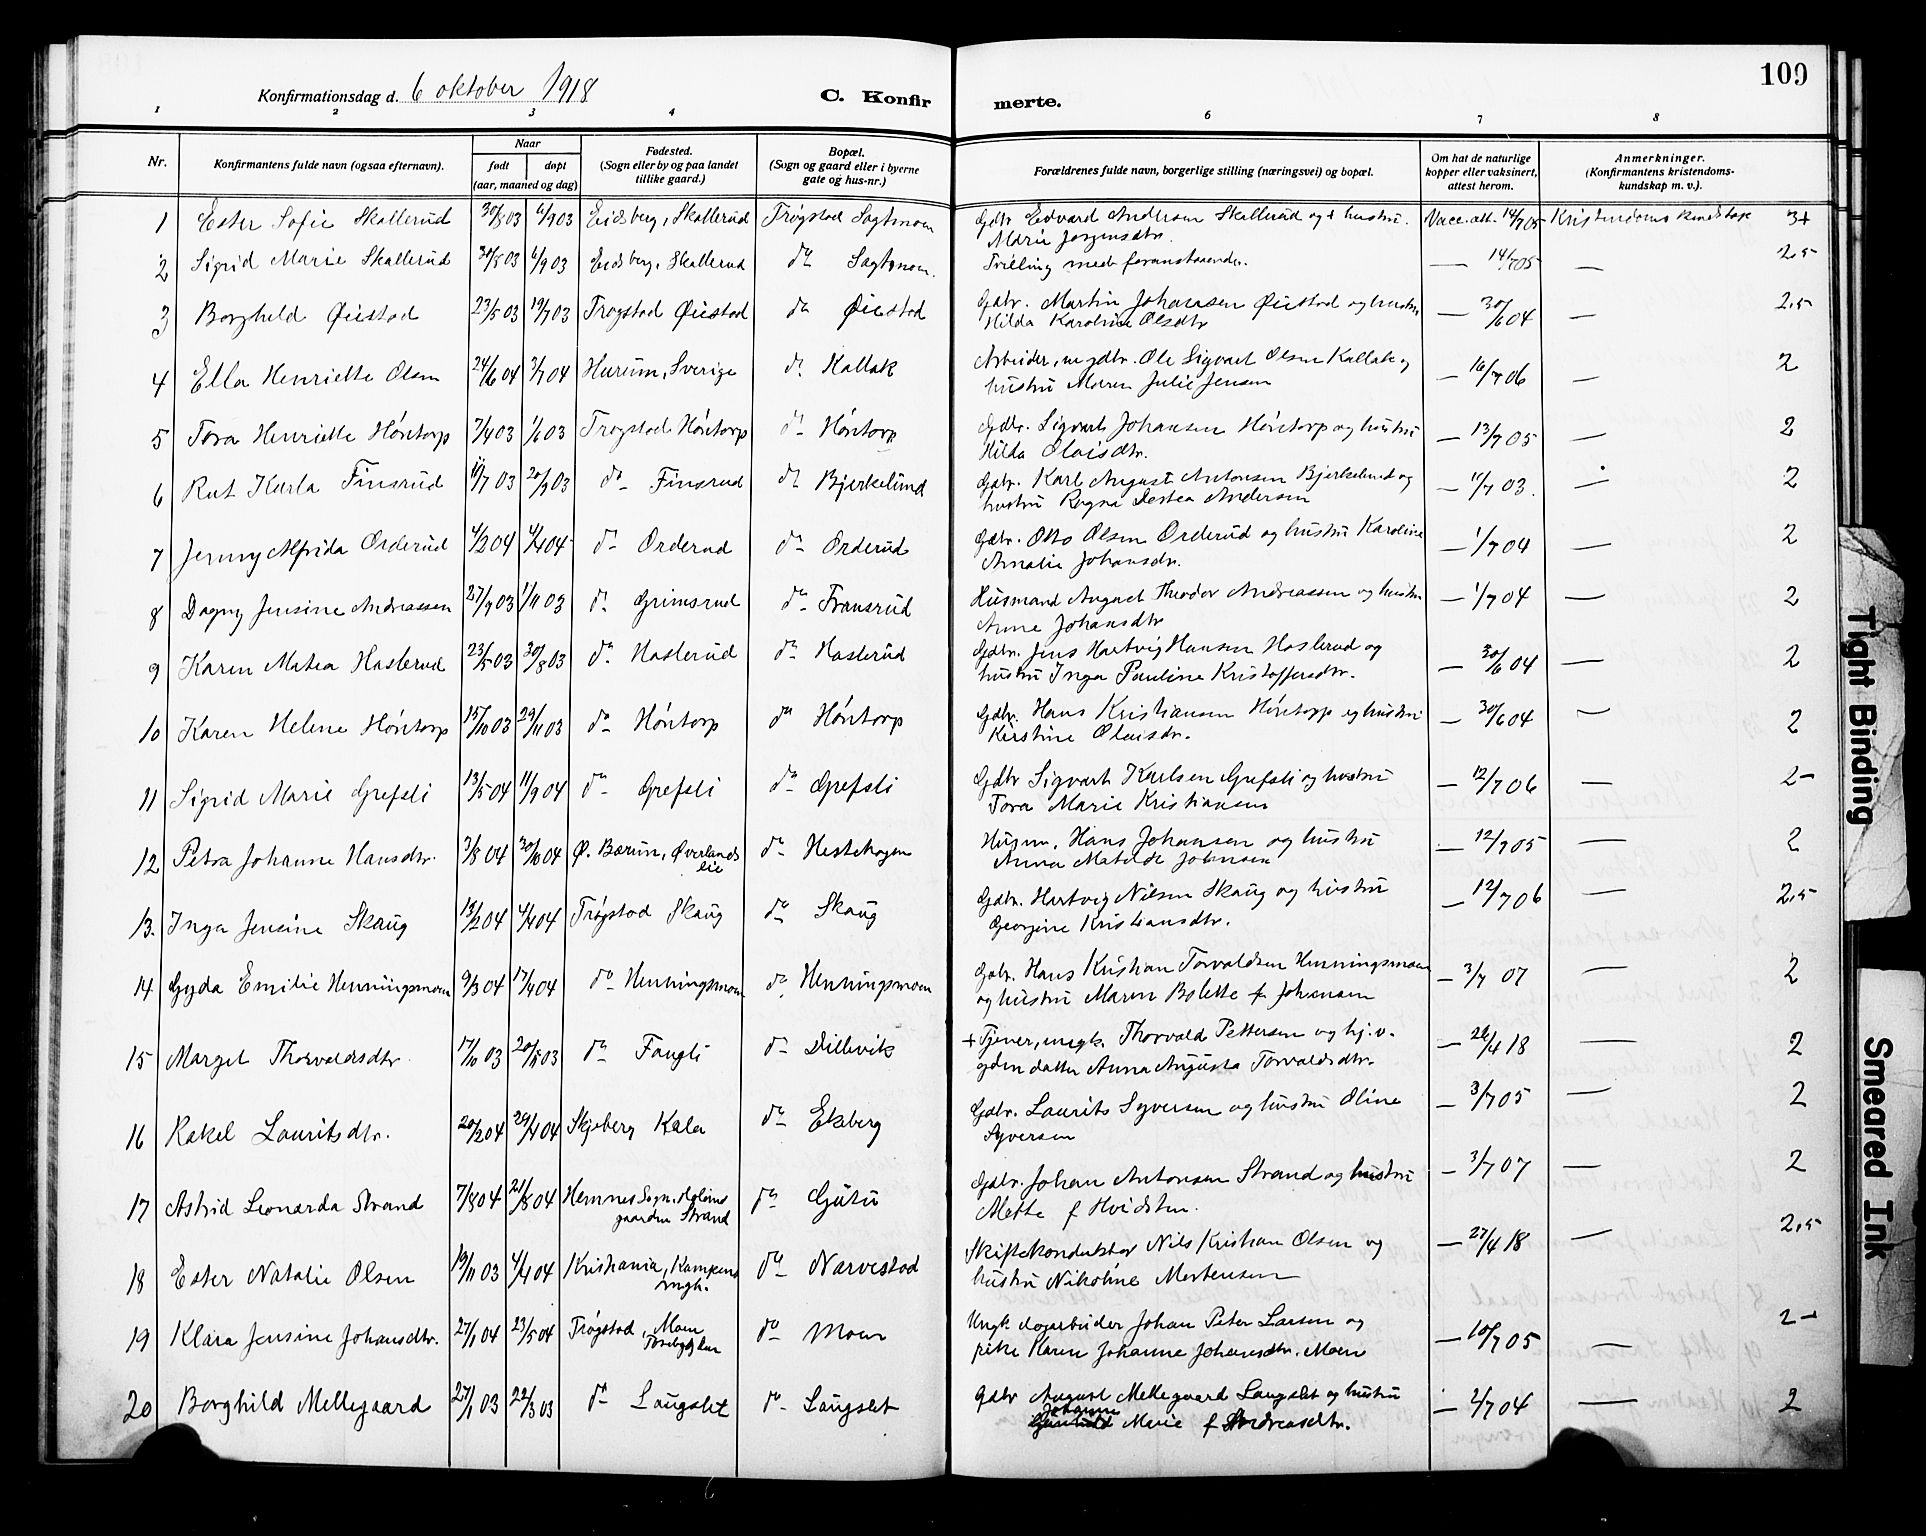 109
Konfirmationsdag d. 6 oktober 1918
C. Konfir merte.
1 2 3 4 6 7 8
Nr. Konfirmantens fulde navn (ogsaa efternavn). Naar født døpt (aar, maaned og dag) Fødested. (Sogn eller by og paa landet tillike gaard.) Bopæl. (Sogn og gaard eller i byerne gate og hus-nr.) Forældrenes fulde navn, borgerlige stilling (næringsvei) og bopæl. Om hat de naturlige kopper eller vaksinert, attest herom. Anmerkninger. (Konfirmantens kristendoms- kundskap m. v.).
1 Ester Sofie Skallerud 30/8 03 6/9 03 Eidsberg, Skallerud Trøgstad Sagtmoen Gdbr. Edvard Andersen Skallerud og hustru Vacc. att. 14/7 05 Kristendoms kundskap 3+
Marie Jørgensdtr.
2 Sigrid Marie Skallerud 30/8 03 6/9 03 Eidsberg, Skallerud do Sagtmoen. Tvilling med foranstaaende. — 14/7 05 — 2,5
3 Borghild Øiestad 23/5 03 19/7 03 Trøgstad Øiestad do Øiestad Gdbr. Martin Johansen Øiestad og hustru — 30/6 04 — 2,5
Hilda Karoline Olsdtr
4 Ella Henriette Olsen 24/6 04 3/7 04 Hurum, Sverige do Kallak Arbeider, nu gdbr. Ole Sigvart Olsen Kallak og — 16/7 06 — 2
hustru Maren Julie Jensen
5 Tora Henriette Høntorp 7/4 03 1/6 03 Trøgstad Høntorp do Høntorp Gdbr. Sigvart Johansen Høntorp og hustru — 13/7 05 — 2
Hilda Olaisdtr.
6 Rut Karla Finsrud 11/7 03 20/9 03 do Finsrud do Bjerkelund Gdbr. Karl August Antonsen Bjerkelund og — 11/7 03. — 2
hustru Ragna Andersen
7 Jenny Alfrida Orderud 4/2 04 4/4 04 do Orderud do Orderud Gdbr. Otto Olsen Orderud og hustru Karoline — 1/7 04 — 2
Amalie Johansdtr.
8 Dagny Jensine Andreassen 27/9 03 1/11 03 do Grimsrud do Fransrud Husmand August Theodor Andreassen og hustru — 1/7 04 — 2
Anne Johansdtr
9 Karen Matea Haslerud 23/5 03 30/8 03 do Haslerud do Haslerud Gdbr. Jens Hartvig Hansen Haslerud og — 30/6 04 — 2
hustru Inga Pauline Kristoffersdtr.
10 Karen Helene Høntorp 15/10 03 29/11 03 do Høntorp do Høntorp Gdbr. Hans Kristiansen Høntorp og hustru — 30/6 04 — 2
Kirstine Olaisdtr.
11 Sigrid Marie Grefsli 13/5 04 11/9 04 do Grefsli do Grefsli Gdbr Sigvart Karlsen Grefsli og hustru — 12/7 06 — 2-
Tora Marie Kristiansen
12 Petra Johanne Hansdtr. 3/8 04 30/10 04 Ø. Bærum, Øverlands do Hestehagen Husm. Hans Johansen og hustru — 12/7 05 — 2
eie Anna Matilde Johnsen
13. Inga Jensine Skaug 13/2 04 4/4 04 Trøgstad Skaug do Skaug Gdbr. Hartvig Nilsen Skaug og hustru — 12/7 06 — 2,5
Georgine Kristiansdtr.
14 Gyda Emilie Henningsmoen 9/3 04 17/4 04 do Henningsmoen do Henningsmoen Gdbr. Hans Kristian Torvaldsen Henningsmoen — 3/7 07 — 2
og hustru Maren Bolette f. Johansen
15 Margit Thorvaldsdtr. 17/10 03 do Fangli do Dillevik + Tjener, ungk. Thorvald Pettersen og hj.v. — 26/4 18 — 2
gdm datter Anna Augusta Torvaldsdtr.
16 Rakel Lauritsdtr. 20/2 04 29/4 04 Skjeberg Kala do Ekeberg Gdbr. Laurits Syversen og hustru Oline — 3/7 05 — 2
Syversen
17 Astrid Leonarda Strand 7/8 04 21/8 04 Hemnes Sogn, Holand do Gutu Gdbr. Johan Antonsen Strand og hustru — 3/7 07 — 2
gaarden Strand Mette f Hvidsten.
18 Ester Natalie Olsen 19/11 03 4/4 04 Kristiania, Kampens do Narvestad Skiftekonduktør Nils Kristian Olsen og — 27/4 18 — 2,5
mgh. hustru Nikoline Mortensen
19 Klara Jensine Johansdtr. 27/1 04 23/5 04 Trøgstad, Moen do Moen Ungk. dagarbeider Johan Peter Larsen og — 10/7 05 — 2-
pike Karen Johanne Johansdtr. Moen
20 Borghild Mellegaard 27/1 03 22/3 03 do Langslet do Langslet Gdbr August Mellegaard Langslet og hustru — 2/7 04 — 2
Johanne Marie f Andreasdtr.
Tight Binding
Smeared Ink